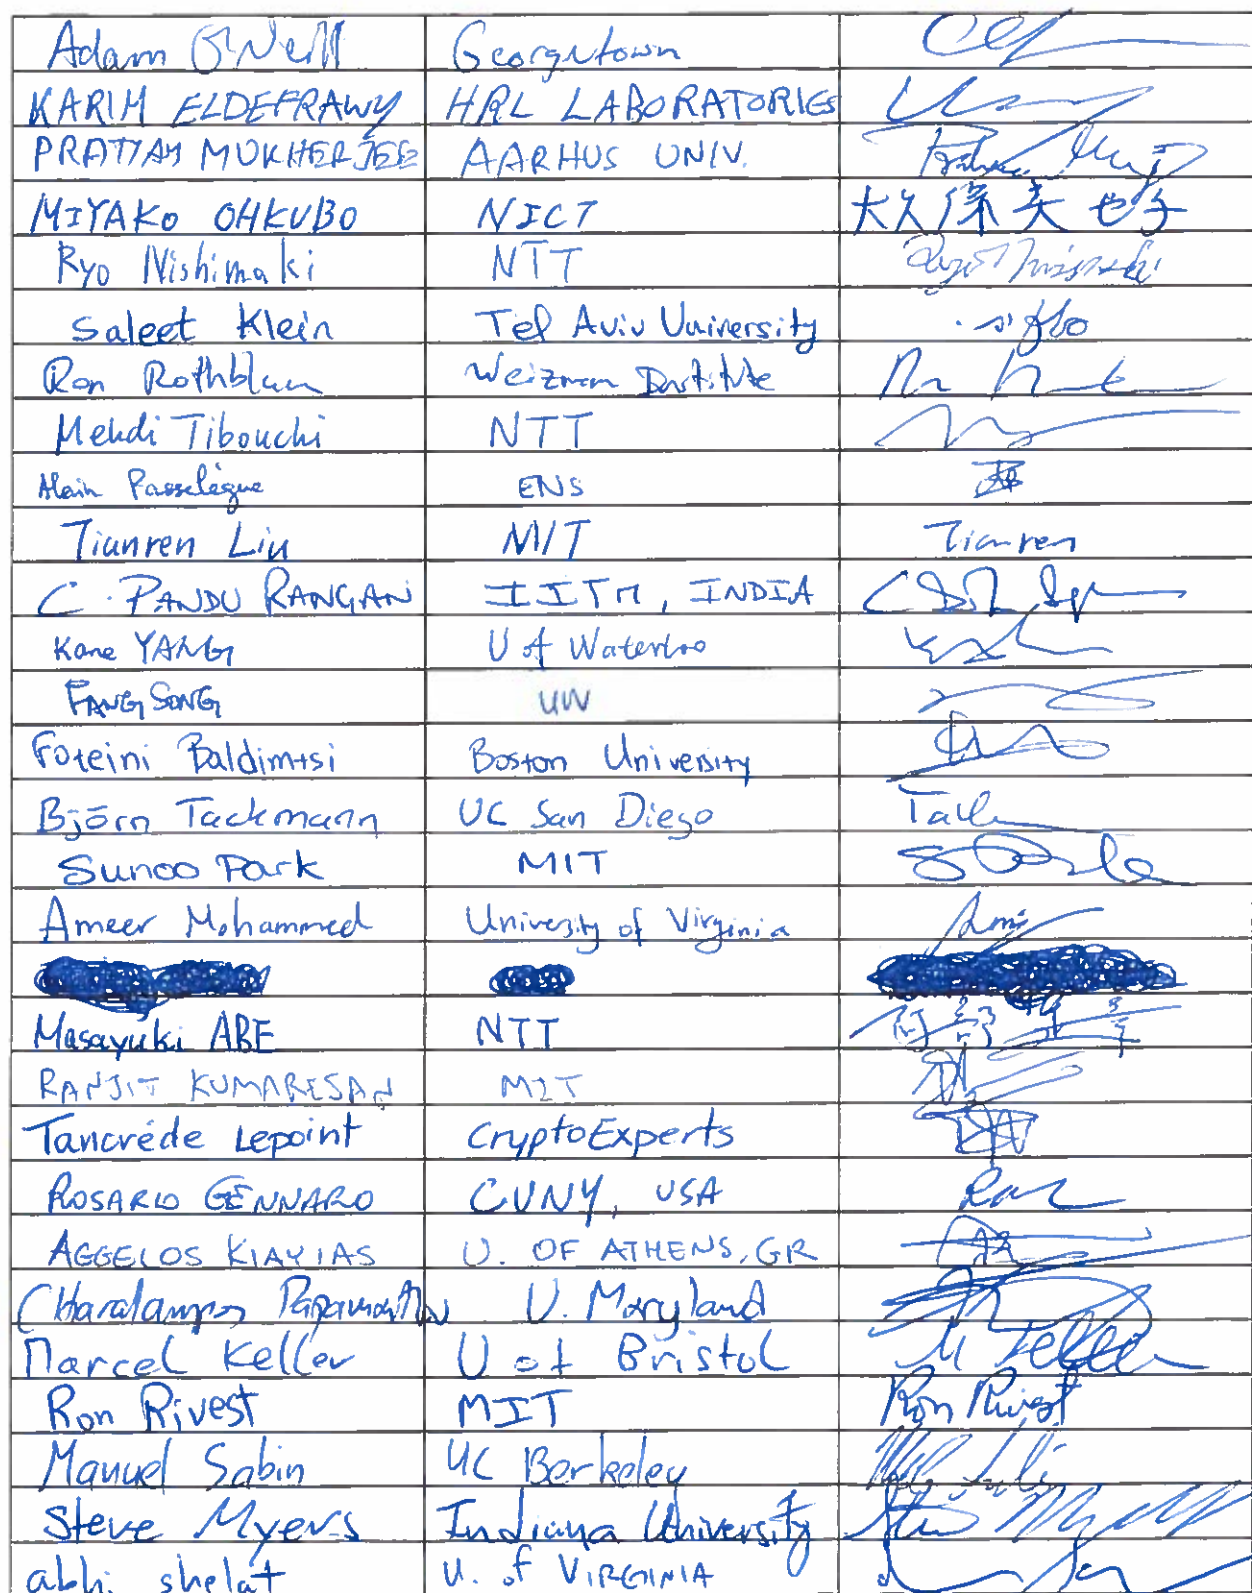 Adam O'Neill Georgetown
KARIM ELDEFRAWY HRL LABORATORIES
PRATYAY MUKHERJEE AARHUS UNIV.
MIYAKO OHKUBO NICT 大久保美也子
Ryo Nishimaki NTT Ryo Nishimaki
Saleet Klein Tel Aviv University
Ron Rothblum Weizman Institute
Mehdi Tibouchi NTT
Alain Passelègue ENS
Tianren Liu MIT Tianren
C. PANDU RANGAN IITM, INDIA
Kane YANG U of Waterloo
FANG SONG UW
Foteini Baldimtsi Boston University
Björn Tackmann UC San Diego
Sunoo Park MIT
Ameer Mohammed University of Virginia
Masayuki ABE NTT
RANJIT KUMARESAN MIT
Tancrède Lepoint CryptoExperts
ROSARIO GENNARO CUNY, USA
AGGELOS KIAYIAS U. OF ATHENS, GR
U. Maryland
Marcel Keller U of Bristol M Keller
Ron Rivest MIT Ron Rivest
Manuel Sabin UC Berkeley
Steve Myers Indiana University
abhi shelat U. of VIRGINIA